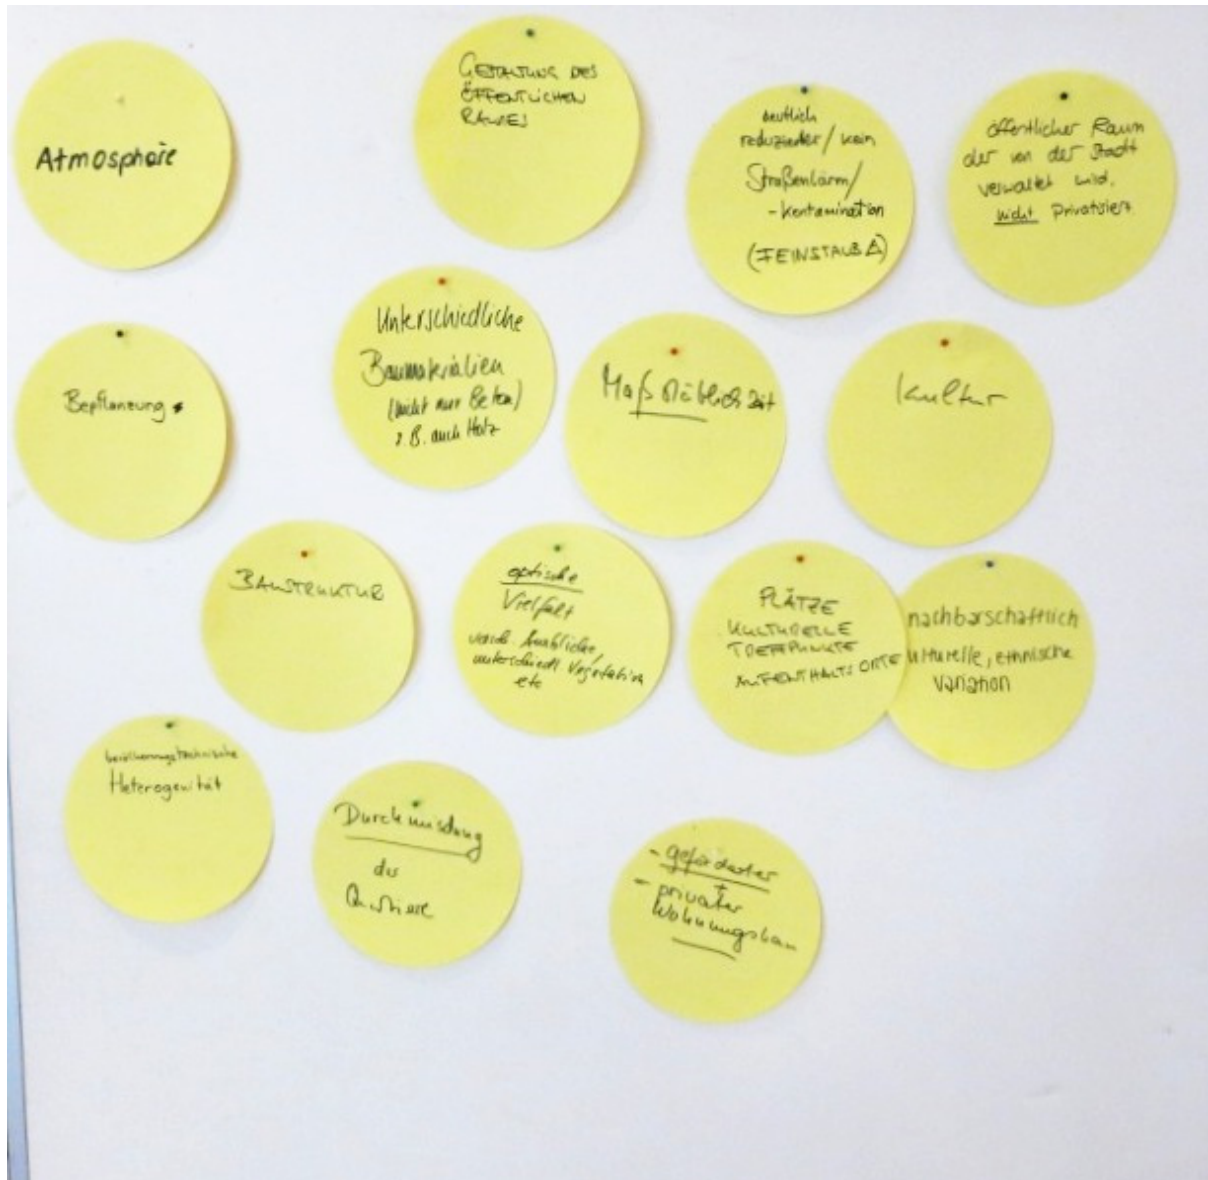 Atmosphäre
GESTALTUNG DES
ÖFFENTLICHEN
RAUMES
deutlich
reduzierter / kein
Straßenlärm/
-kontamination
(FEINSTAUB ⚠)
öffentlicher Raum
der von der Stadt
verwaltet wird,
nicht privatisiert
Bepflanzung
Unterschiedliche
Baumaterialien
(nicht nur Beton)
z.B. auch Holz
Maßstäblichkeit
Kultur
BAUSTRUKTUR
optische
Vielfalt
versch. Anblicke,
unterschiedl. Vegetation
etc
PLÄTZE
KULTURELLE
TREFFPUNKTE
AUFENTHALTSORTE
nachbarschaftlich
ulturelle, ethnische
variation
bevölkerungstechnische
Heterogenität
Durchmischung
der
Quartiere
- geförderter
+
- privater
Wohnungsbau